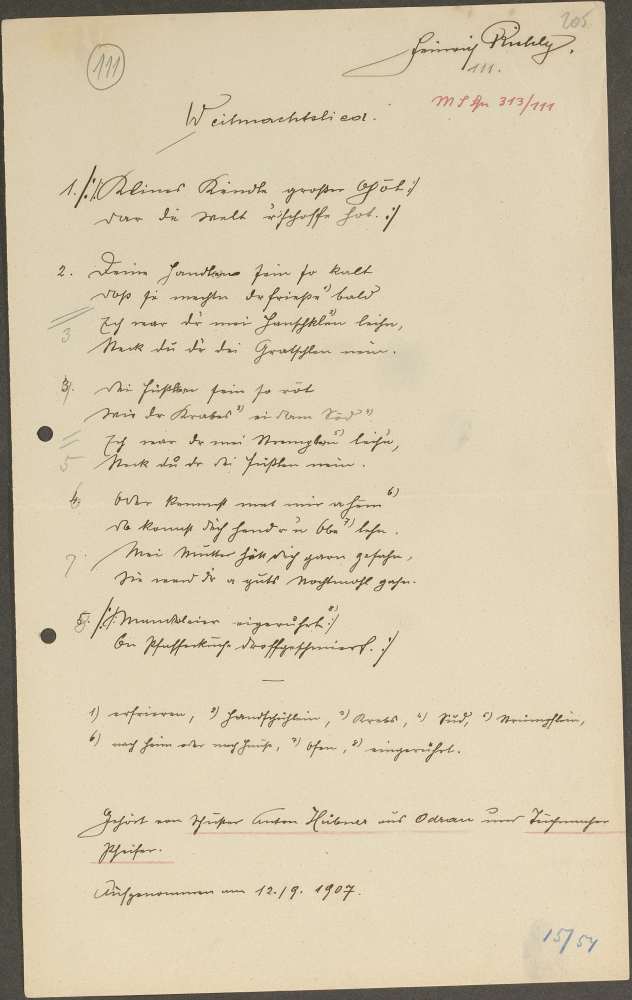 205.
111
Heinrich Richly.
111.
MS Qu 313/111
Weihnachtslied.
1. /:/: Klines Kindla großer Gŏt :/
dar die Welt drschoffe hot. :/
2. Deine Handlan sein so kalt
Doß se mechta drfriese 1) bald
Ich war dr mei Hanschklan 2) leihn,
Steck du dr dei Gratschlan nein.
3
3. Dei Füßlan sein so rot
Wie dr Krabes 3) ei dam Sŏd 4)
Ich war dr mei Stremplan 5) leihn,
Steck du dr dei Füßlan nein.
5
4. Oder kommst met mir ahem 6)
Do konnst dich hendr n Obe 7) lehn.
7. Mei Mutter hätt dich garn gesahn,
Sie werd dr a guts Nochtmohl gahn.
5. /:/: Mandleier eigeruhrt 8) :/
On Pfafferkuche droffgeschmiert. :/
1) erfrieren, 2) Handschühlein, 3) Krebs, 4) Sud, 5) Strümpflein,
6) nach heim oder nach Hause, 7) Ofen, 8) eingerührt.
Gehört von Schuster Anton Hübner aus Odrau und Tuchmacher
Pfeifer.
Aufgenommen am 12./9. 1907.
15/54